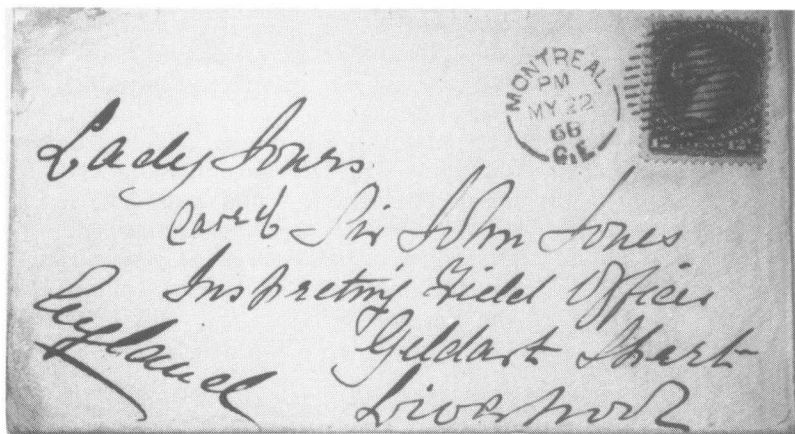 MONTREAL
PM
MY 22
66
C.E.
12 12
Lady Jones
Care of Sir John Jones
Inspecting Field Officer
Geldart Street
Liverpool
England